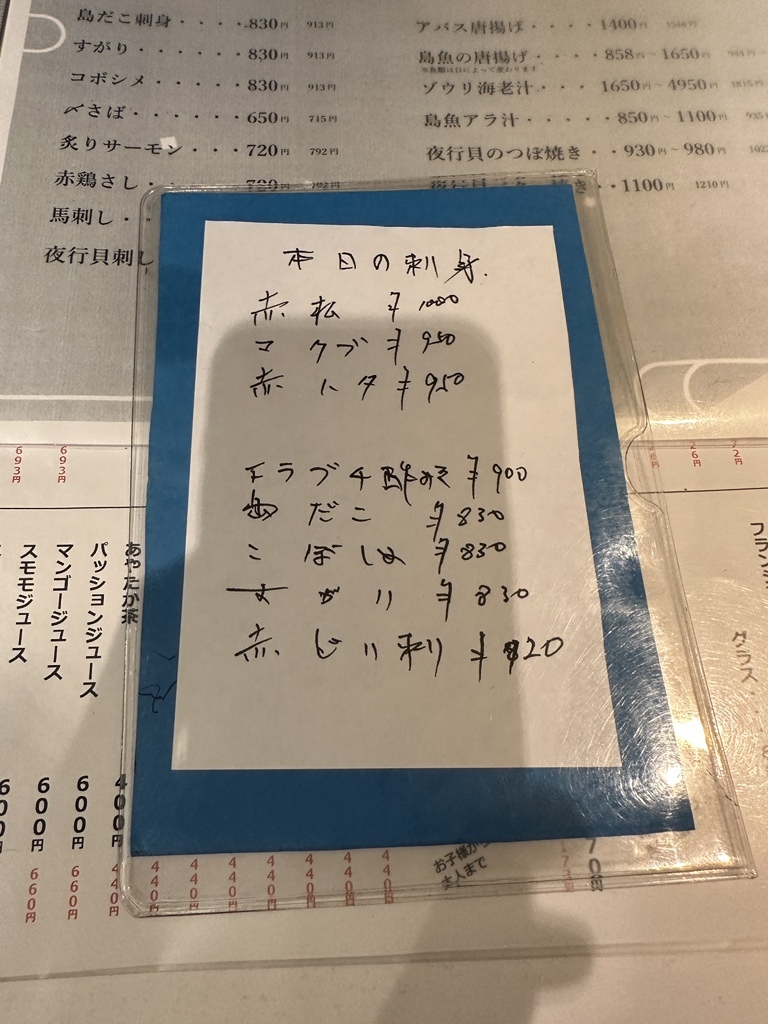 島だこ刺身・・・・.830円 913円
すがり・・・・・・830円 913円
コボシメ・・・・・830円 913円
〆さば・・・・・・650円 715円
炙りサーモン・・・720円 792円
赤鶏さし・・ 720円 792円
馬刺し・・
夜行貝刺し
アバス唐揚げ・・・・1400円 1540円
島魚の唐揚げ・・・・858円～1650円
※魚類は日によって変わります
ゾウリ海老汁・・・1650円～4950円
島魚アラ汁・・・・850円～1100円
夜行貝のつぼ焼き・・930円～980円
き・・1100円 1210円
本日の刺身
赤松 ¥1000
マクブ ¥950
赤ハタ ¥950
エラブチ酢みそ ¥900
島だこ ¥830
こぼしめ ¥830
すがり ¥830
赤どり刺り ¥820
693円
693円
あやたか茶
パッションジュース
マンゴージュース
スモモジュース
400円
600円
600円
600円
440円
660円
660円
440円
440円
440円
440円
440円
440円
440円
お子様から
大人まで
グラス